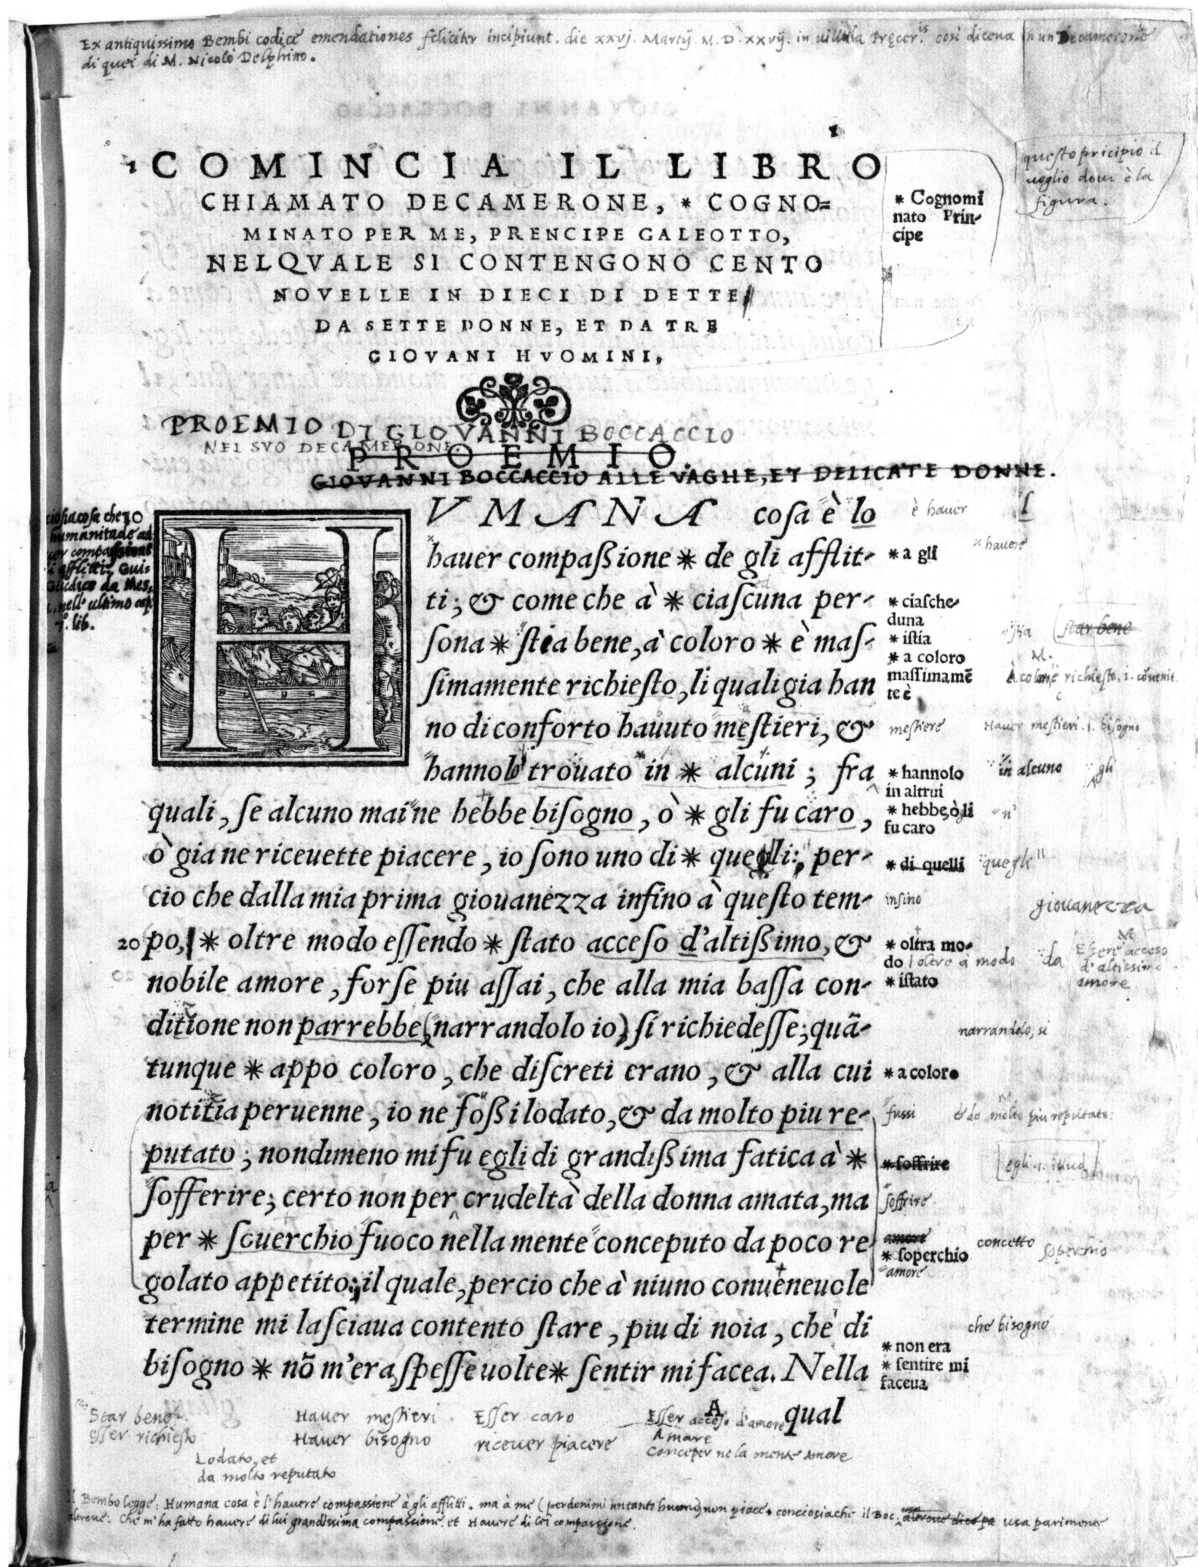 Ex antiquissimo Bembi codice emendationes feliciter incipiunt. die xxvj. Martij M.D.xxvij. in così diceua in un Decamerone
di quei di M. Nicolò Delphino.
COMINCIA IL LIBRO
CHIAMATO DECAMERONE, * COGNO=
MINATO PER ME, PRENCIPE GALEOTTO,
NELQVALE SI CONTENGONO CENTO
NOVELLE IN DIECI DI DETTE
DA SETTE DONNE, ET DA TRE
GIOVANI HVOMINI.
* Cognomi
nato Prin-
cipe
questo pricipio il
uoglio doui è la
figura.
PROEMIO DI GIOVANNI BOCCACCIO
NEL SVO DECAMERONE
PROEMIO.
GIOVANNI BOCCACCIO ALLE VAGHE, ET DELICATE DONNE.
10
humanitade
afflitti. Gui-
Giudice da Mes.
nell' ultimo cap.
lib.
HVMANA cosa è lo
hauer compaßione * de gli afflit-
ti; & come che à * ciascuna per-
sona * stia bene, à coloro * è mas-
simamente richiesto, li quali gia han
no di conforto hauuto mestieri, &
hannolo trouato in * alcuni; fra
quali, se alcuno mai ne hebbe bisogno, ò * gli fu caro,
ò gia ne riceuette piacere, io sono uno di * quegli: per-
cio che dalla mia prima giouanezza infino à questo tem-
20 po, * oltre modo essendo * stato acceso d'altißimo, &
nobile amore, forse piu assai, che alla mia bassa con-
ditione non parrebbe (narrandolo io) si richiedesse; quā-
tunque * appo coloro, che discreti erano, & alla cui
notitia peruenne, io ne foßi lodato, & da molto piu re-
putato; nondimeno mi fu egli di grandißima fatica à *
sofferire; certo non per crudeltà della donna amata, ma
per * souerchio fuoco nella mente conceputo da poco re
golato appetito: il quale, percio che à niuno conueneuole
termine mi lasciaua contento stare, piu di noia, che di
bisogno * nō m'era spesse uolte * sentir mi facea. Nella
A qual
è hauer
* a gli
hauere
* ciasche-
duna
* istia
* a coloro
massimamē
te è
stia
star bene
richiesto, i. conuenit.
mestiere
Hauer mestieri .i. bisogno
* hannolo
in altrui
in alcuno
gli
* hebbe, ò li
fu caro
* di quelli
quegli
insino
giouanezza
* oltra mo-
do
oltre a modo
* istato
da
Essere acceso
d'altissimo
amore
narrandolo, si
* a coloro
fussi
& da molto piu reputato:
* soffrire
egli .i. illud
soffrire
amore
* soperchio
amore
concetto
soperchio
che bisogno
* non era
* sentire mi
faceua
Star bene
Esser richiesto
Lodato, et
da molto reputato
Hauer mestieri
Hauer bisogno
Esser caro
riceuer piacere
Esser acceso d'amore
Amare
Conceper ne la mente Amore
Il Bembo legge: Humana cosa è l'hauere compassione à gli afflitti. ma à me (perdonimi un tanto huomo) non piace. conciosiache il Boc. usa parimente
altroue: Che m'ha fatto hauere di lui grandissima compassione. et Hauere di lei compassione.